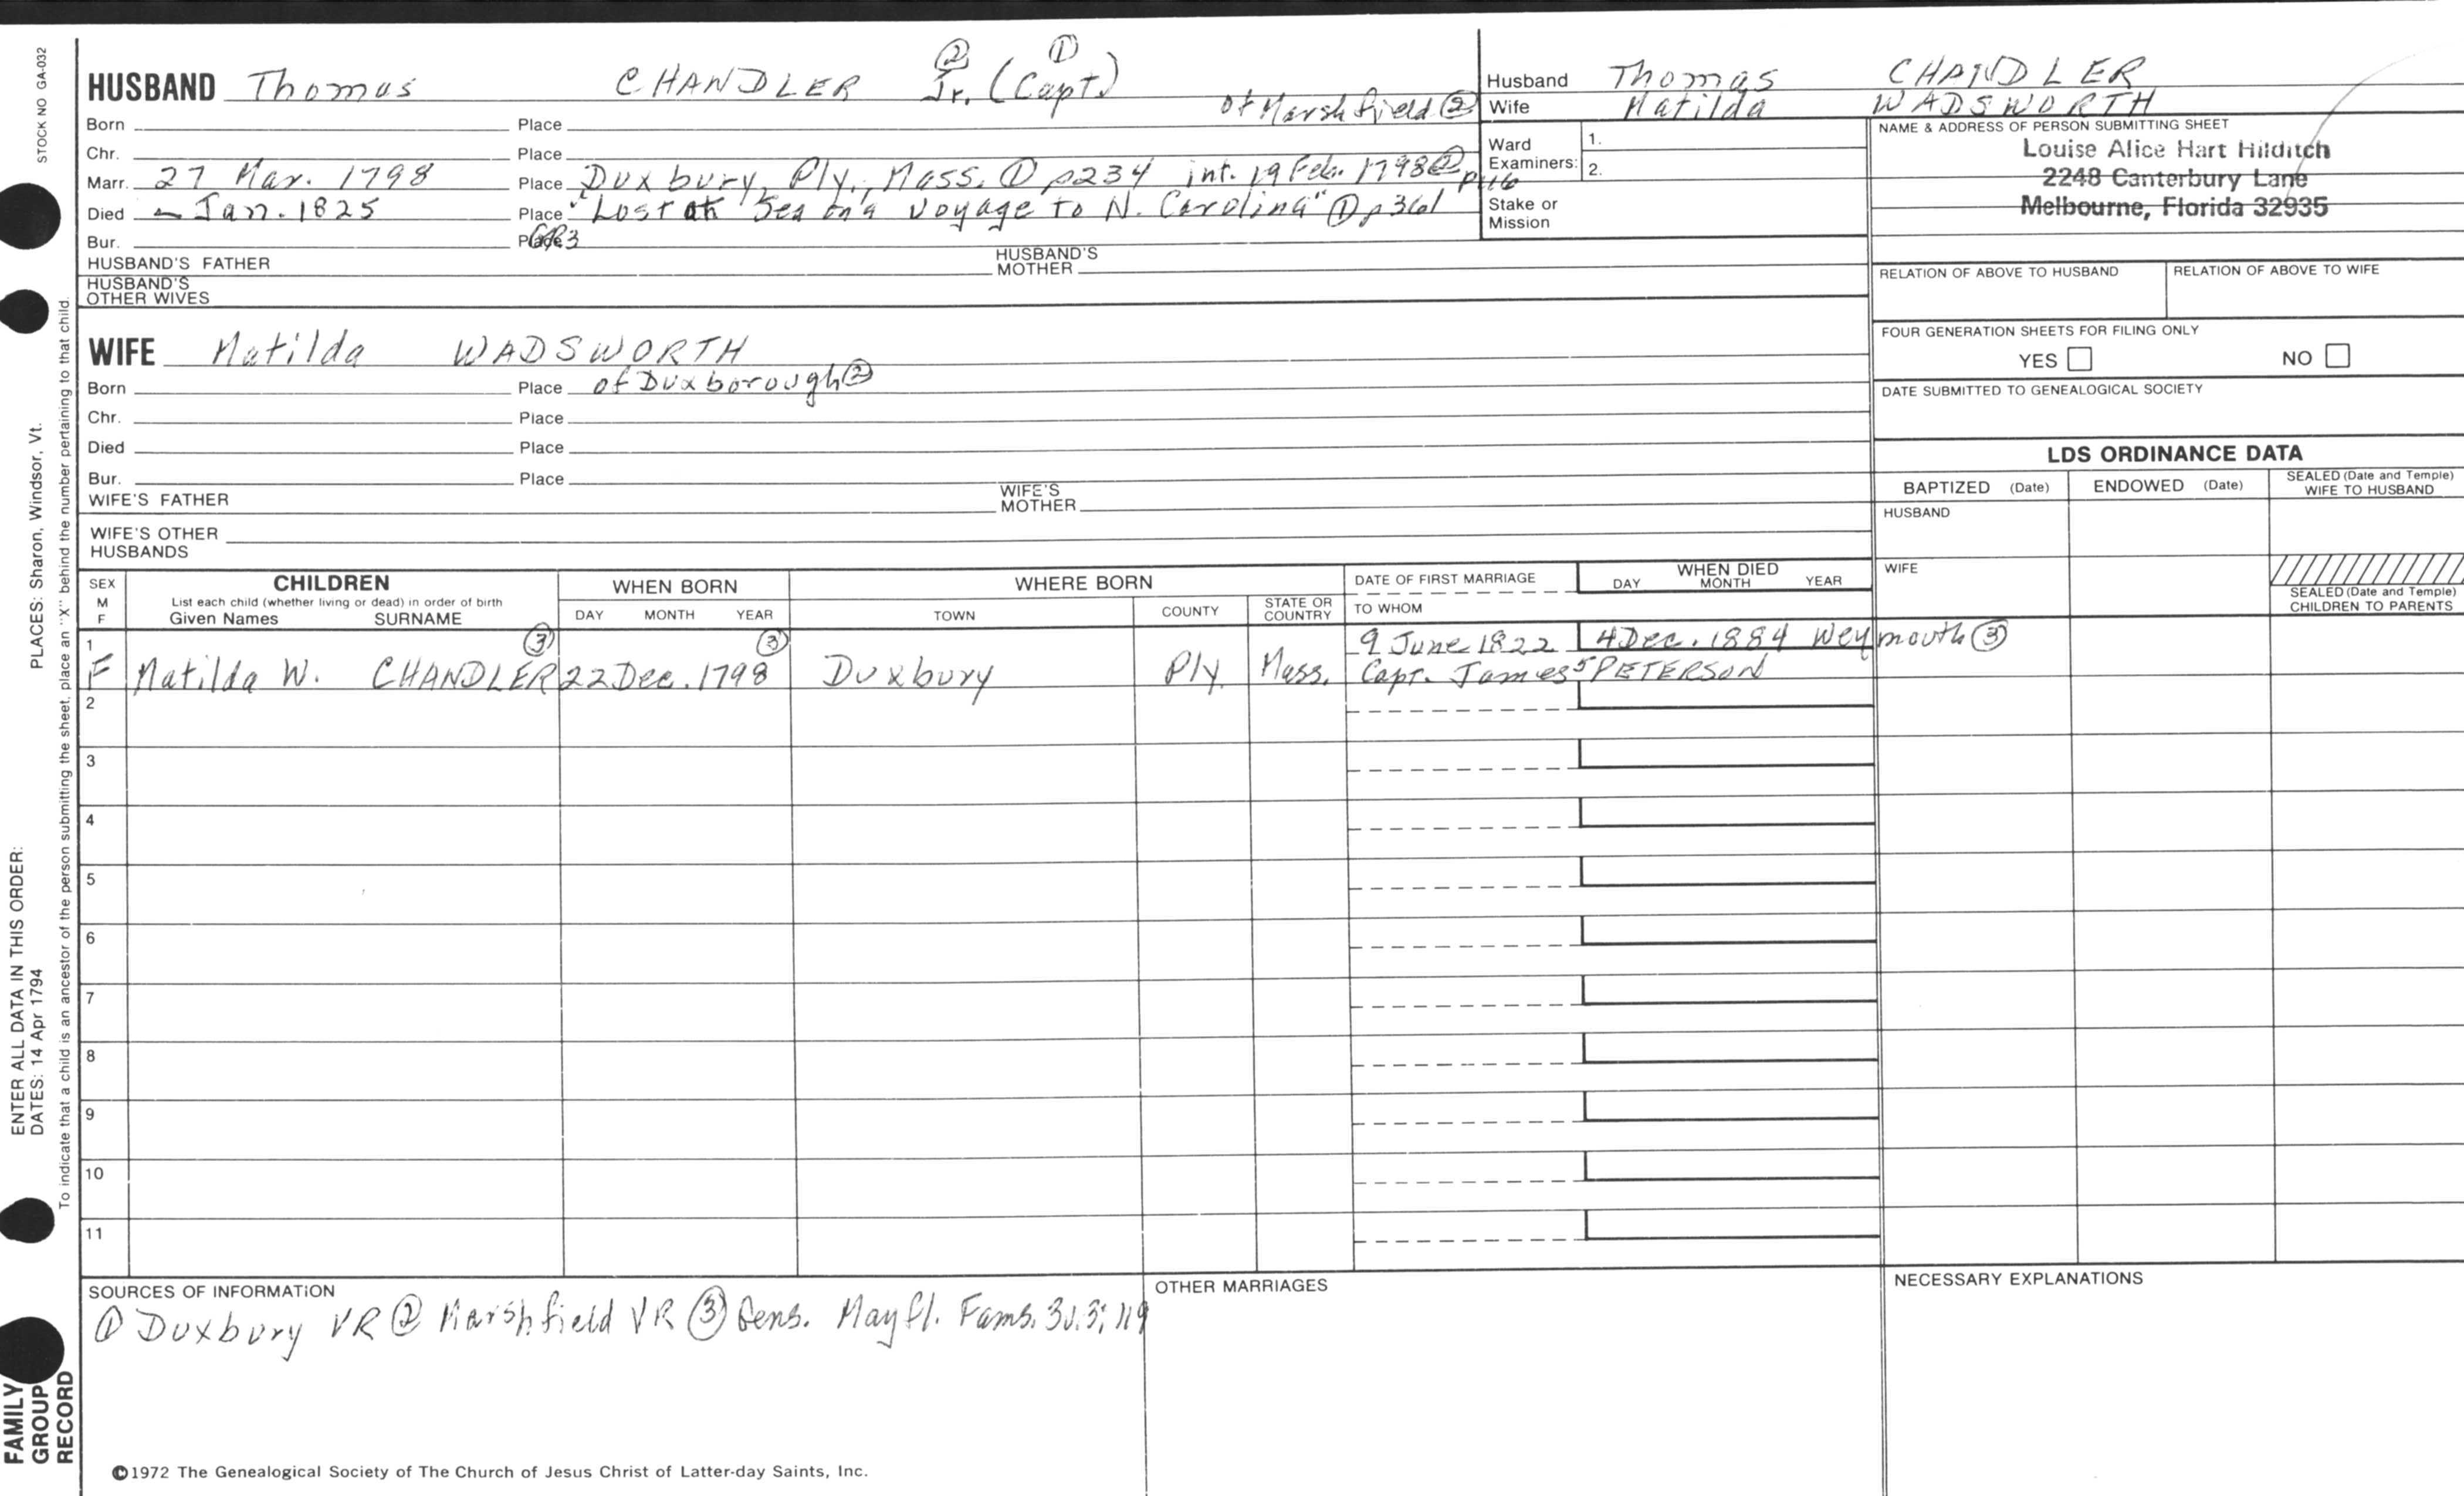 STOCK NO GA-032
PLACES: Sharon, Windsor, Vt.
ENTER ALL DATA IN THIS ORDER:
DATES: 14 Apr 1794
To indicate that a child is an ancestor of the person submitting the sheet, place an "X" behind the number pertaining to that child.
FAMILY
GROUP
RECORD
② ①
HUSBAND Thomas CHANDLER Jr. (Capt.)
of Marshfield ②
Born Place
Chr. Place
Marr. 27 Mar. 1798 Place Duxbury, Ply., Mass. ① p234 int. 19 Feb. 1798 ② p116
Died – Jan. 1825 Place "Lost at Sea on a voyage to N. Carolina" ① p361
Bur. Place GR3
HUSBAND'S FATHER HUSBAND'S MOTHER
HUSBAND'S
OTHER WIVES
WIFE Matilda WADSWORTH
Born Place of Duxborough ②
Chr. Place
Died Place
Bur. Place
WIFE'S FATHER WIFE'S MOTHER
WIFE'S OTHER
HUSBANDS
Husband Thomas CHANDLER
Wife Matilda WADSWORTH
Ward
Examiners: 1.
2.
Stake or
Mission
NAME & ADDRESS OF PERSON SUBMITTING SHEET
Louise Alice Hart Hilditch
2248 Canterbury Lane
Melbourne, Florida 32935
RELATION OF ABOVE TO HUSBAND RELATION OF ABOVE TO WIFE
FOUR GENERATION SHEETS FOR FILING ONLY
YES NO
DATE SUBMITTED TO GENEALOGICAL SOCIETY
LDS ORDINANCE DATA
BAPTIZED (Date) ENDOWED (Date) SEALED (Date and Temple)
WIFE TO HUSBAND
HUSBAND
WIFE
SEALED (Date and Temple)
CHILDREN TO PARENTS
SEX
M
F
CHILDREN
List each child (whether living or dead) in order of birth
Given Names SURNAME
WHEN BORN
DAY MONTH YEAR
WHERE BORN
TOWN COUNTY STATE OR COUNTRY
DATE OF FIRST MARRIAGE
TO WHOM
WHEN DIED
DAY MONTH YEAR
1 ③ ③ 9 June 1822 4 Dec. 1884 Weymouth ③
F Matilda W. CHANDLER 22 Dec. 1798 Duxbury Ply. Mass. Capt. James⁵ PETERSON
2
3
4
5
6
7
8
9
10
11
SOURCES OF INFORMATION
① Duxbury VR ② Marshfield VR ③ Gens. Mayfl. Fams. 3v.3; 119
OTHER MARRIAGES
NECESSARY EXPLANATIONS
©1972 The Genealogical Society of The Church of Jesus Christ of Latter-day Saints, Inc.